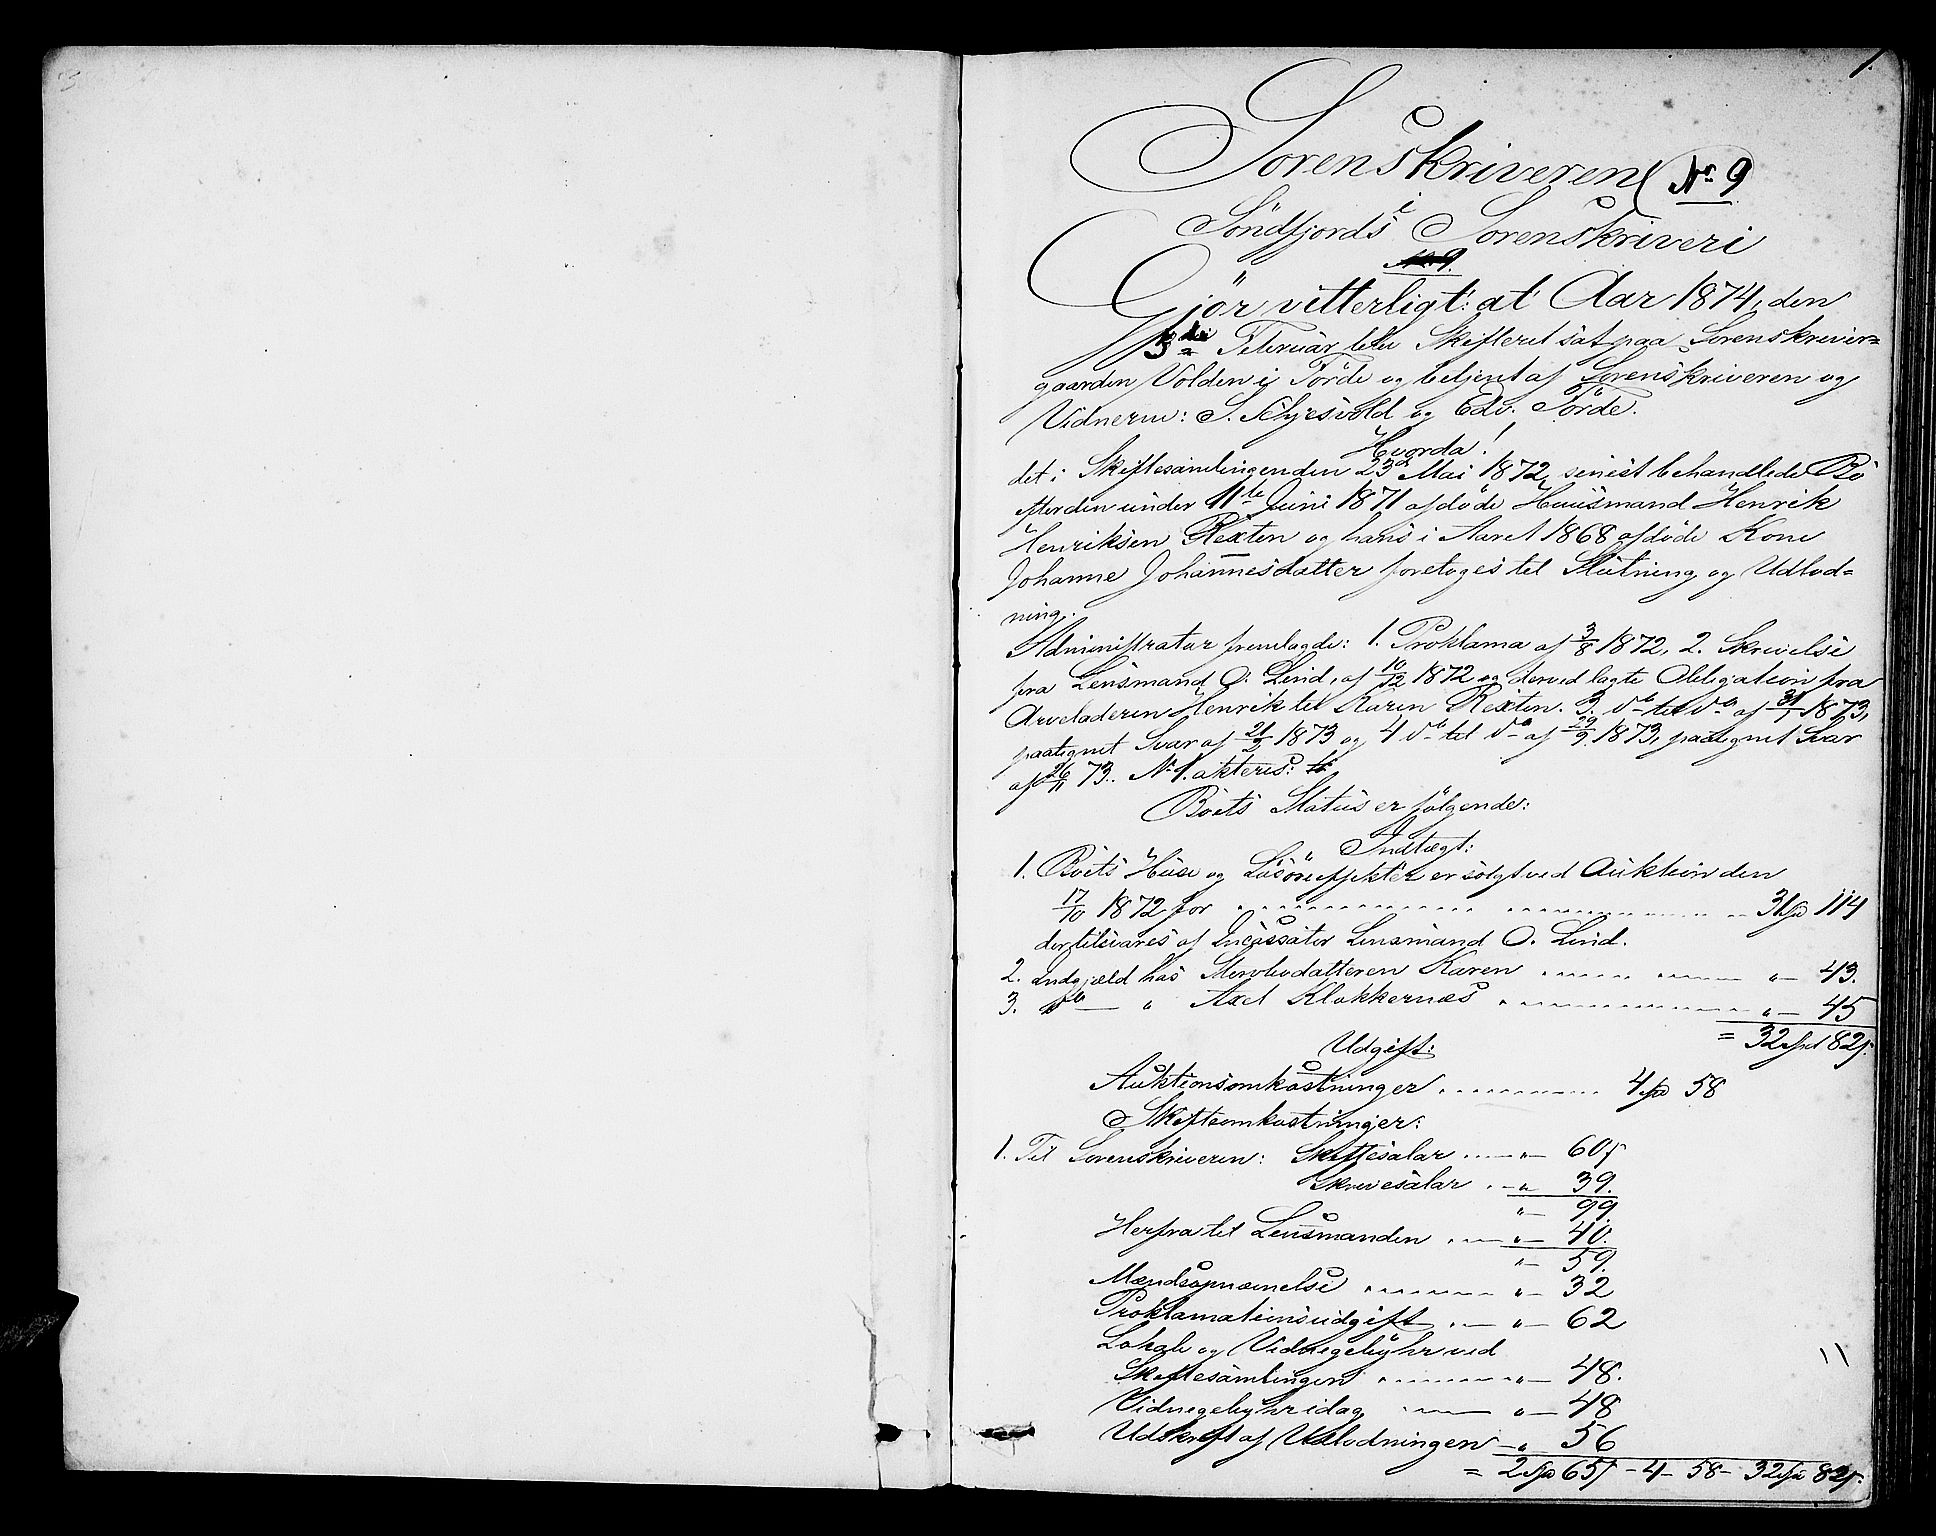 1.
Sorenskriveren No 9
i
Söndfjords Sorenskriveri
No 9.
Gjör vitterligt: at Aar 1874, den
3die Februar blev Skifteret sat paa Sorenskriver-
gaarden Volden i Förde og betjent af Sorenskriveren og
Vidnerne: S. og Edv. Förde.
Hvorda!
det i Skiftesamlingen den 23de Mai 1872, senest behandlede Bo
efter den under 11te Juni 1871 afdöde Huusmand Henrik
Henriksen Rexten og hans i Aaret 1868 afdöde Kone
Johanne Johannesdatter foretoges til Slutning og Udlod-
ning.
Administrator fremlagde: 1. Proklama af 3/8 1872, 2. Skrivelse
fra Lensmand O. Lind, af 10/12 1872 og derved lagte Obligation fra
Arveladeren Henrik til Karen Rexten. 3. do til do af 31/1 1873,
paategnet Svar af 21/2 1873 og 4 do til do af 29/9 1873, paategnet Svar
af 26/11 73. No 1. akteres:
Boets Status er fölgende:
Indtægt:
1. Boets Huse og Lösöreeffekter er solgt ved Auktion den
17/10 1872 for 31 Spd 114
der tilsvares af Incassator Lensmand O. Lind.
2. Indgjæld hos Datteren Karen " — 43.
3. do — " Axel Klokkernæs " — 45
= 32 Spd 82 s.
Udgift:
Auktionsomkostninger 4 Spd 58
Skifteomkostninger:
1. Til Sorenskriveren: Skiftesalar " — 60 s
Skrivesalar " — 39.
" — 99
Herfra til Lensmanden " — 40.
" — 59.
Mændsopnævnelse " — 32
Proklamationsudgift " — 62
Lokale og Vidnegebyhr ved
Skiftesamlingen " — 48.
Vidnegebyhr idag " — 48
Udskrift af Udlodningen " 56
= 2 Spd 65 s - 4 - 58 - 32 Spd 82 s.